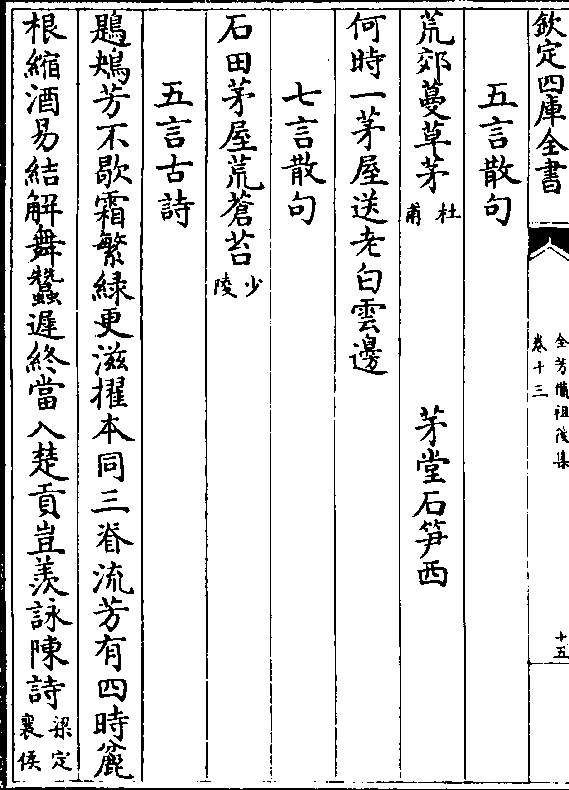 欽定四庫全書
全芳備祖後集
卷十三
十五
五言散句
荒郊蔓草茅杜甫 茅堂石笋西
何時一茅屋送老白雲邊
七言散句
石田茅屋荒蒼苔少陵
五言古詩
鶗鴂芳不歇霜繁緑更滋擢本同三脊流芳有四時麄
根縮酒易結解舞蠶遲終當入楚貢豈羡詠陳詩梁定襄侯